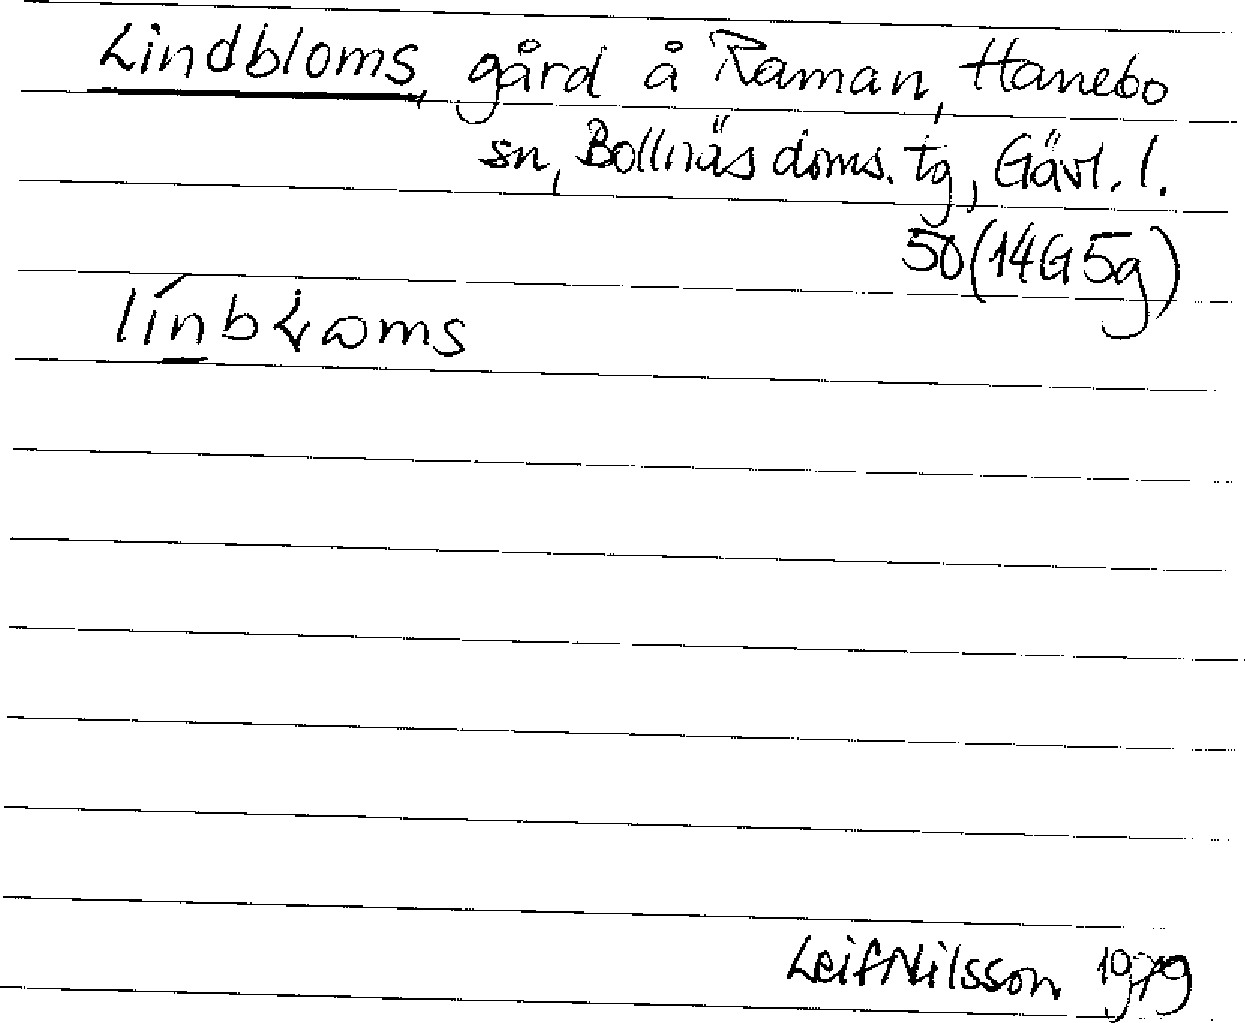 Lindbloms, gård å Raman, Hanebo
sn, Bollnäs doms. tg, Gävl. l.
50 (14G 5g)
Leif Nilsson 1979